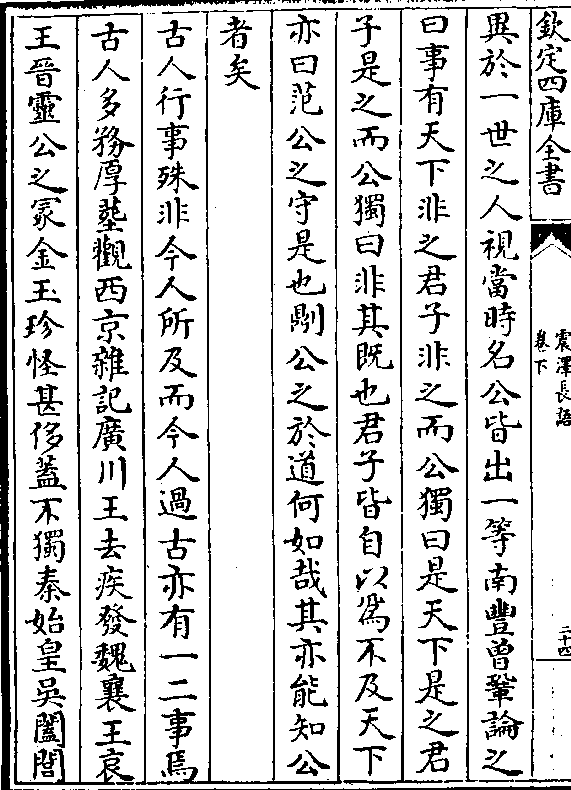 欽定四庫全書
震澤長語
卷下
二十四
異於一世之人視當時名公皆出一等南豐曾鞏論之
曰事有天下非之君子非之而公獨曰是天下是之君
子是之而公獨曰非其既也君子皆自以為不及天下
亦曰范公之守是也則公之於道何如哉其亦能知公
者矣
古人行事殊非今人所及而今人過古亦有一二事焉
古人多務厚塟觀西京雜記廣川王去疾發魏襄王哀
王晉靈公之冡金玉珍怪甚侈蓋不獨秦始皇吳闔閭